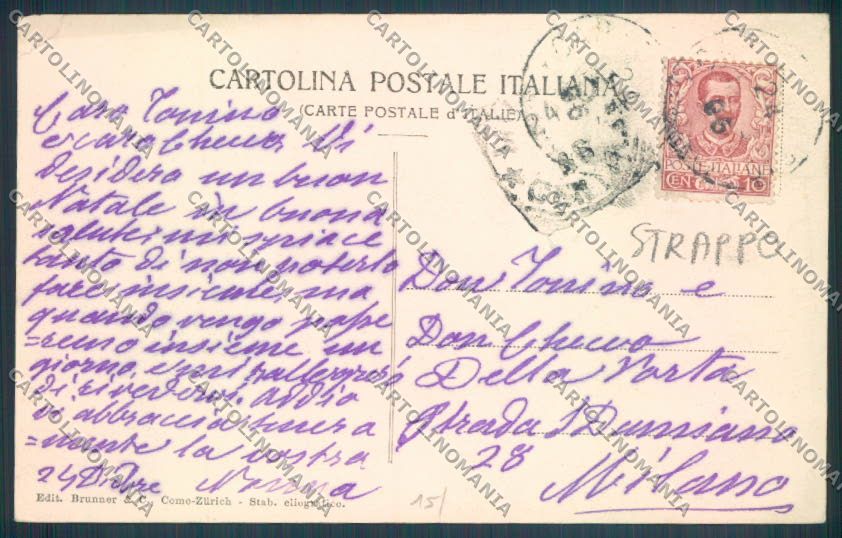 CARTOLINA POSTALE ITALIANA
(CARTE POSTALE d'ITALIE)
Caro Tonino
e caro Checco Vi
desidero un buon
Natale in buona
salute; mi spiace
tanto di non poterlo
fare insieme, ma
quando vengo passe
=remo insieme un
giorno, e mi rallegrerò
di rivedervi. Addio
Vi abbraccia tenera
=mente la vostra
24 Dbre Nonna
Edit. Brunner & C., Como-Zürich - Stab. eliografico.
15/
POSTE ITALIANE
CENT. 10
24
STRAPPO
Don Tonino e
Don Checco
Della Porta
Strada S Damiano
28
Milano
CARTOLINOMANIA